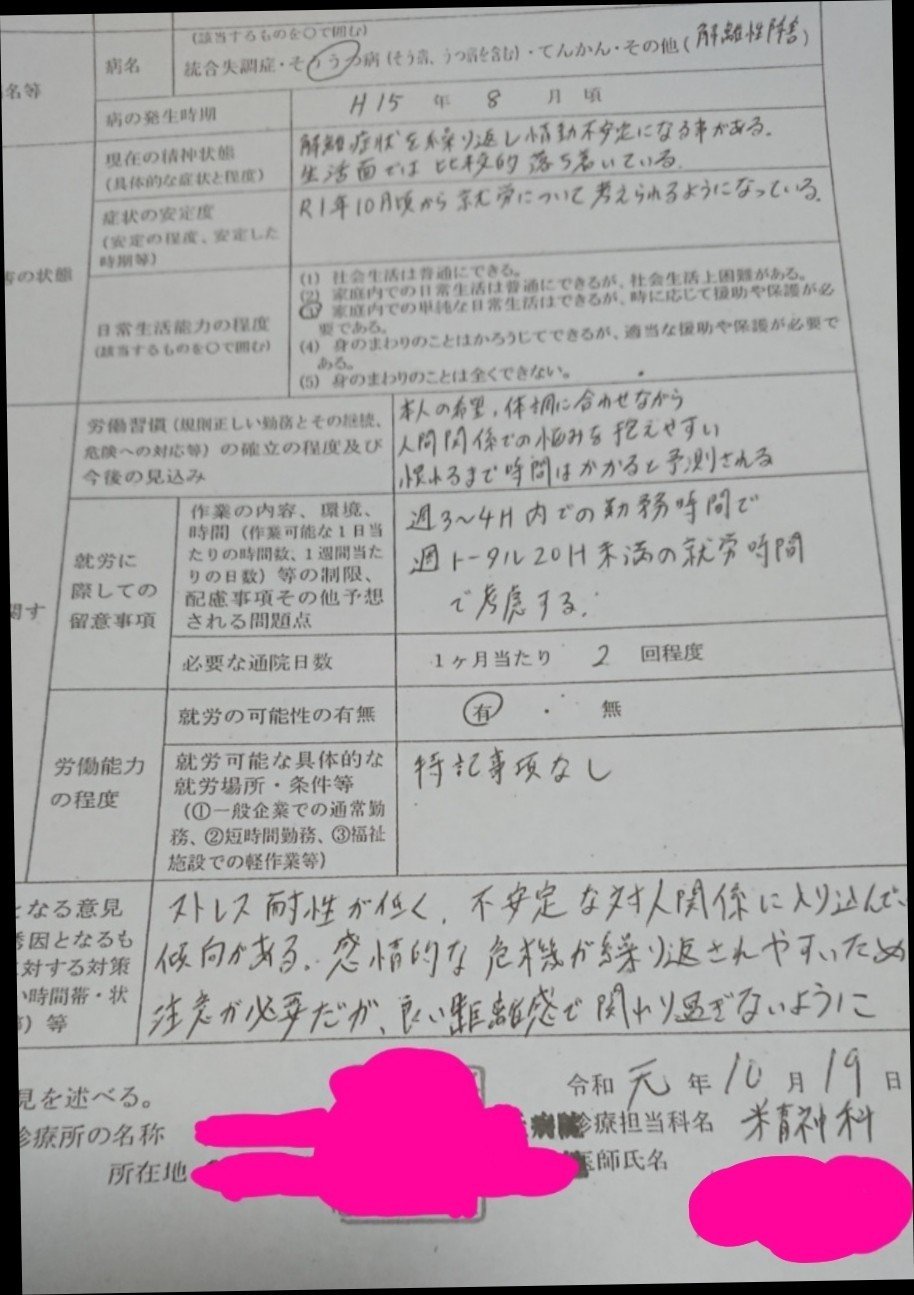 (該当するものを○で囲む)
病名
統合失調症・そううつ病(そう病、うつ病を含む)・てんかん・その他(解離性障害)
名等
病の発生時期
H15 年 8 月 頃
現在の精神状態
(具体的な症状と程度)
解離症状を繰り返し情動不安定になる事がある。
生活面では比較的落ち着いている。
症状の安定度
(安定の程度、安定した
時期等)
R1年10月頃から就労について考えられるようになっている。
の状態
日常生活能力の程度
(該当するものを○で囲む)
(1) 社会生活は普通にできる。
(2) 家庭内での日常生活は普通にできるが、社会生活上困難がある。
(3) 家庭内での単純な日常生活はできるが、時に応じて援助や保護が必
要である。
(4) 身のまわりのことはかろうじてできるが、適当な援助や保護が必要で
ある。
(5) 身のまわりのことは全くできない。
労働習慣(規則正しい勤務とその継続、
危険への対応等)の確立の程度及び
今後の見込み
本人の希望、体調に合わせながら
人間関係での悩みを抱えやすい
慣れるまで時間はかかると予測される
関す
就労に
際しての
留意事項
作業の内容、環境、
時間(作業可能な1日当
たりの時間数、1週間当た
りの日数)等の制限、
配慮事項その他予想
される問題点
週3〜4H内での勤務時間で
週トータル20H未満の就労時間
で考慮する。
必要な通院日数
1ヶ月当たり 2 回程度
労働能力
の程度
就労の可能性の有無
有 ・ 無
就労可能な具体的な
就労場所・条件等
(①一般企業での通常勤
務、②短時間勤務、③福祉
施設での軽作業等)
特記事項なし
となる意見
誘因となるも
対する対策
い時間帯・状
等)等
ストレス耐性が低く、不安定な対人関係に入り込んで
傾向がある。感情的な危機が繰り返されやすいため
注意が必要だが、良い距離感で関わり過ぎないように
見を述べる。
令和 元 年 10 月 19 日
診療所の名称
病院
診療担当科名 精神科
所在地
医師氏名